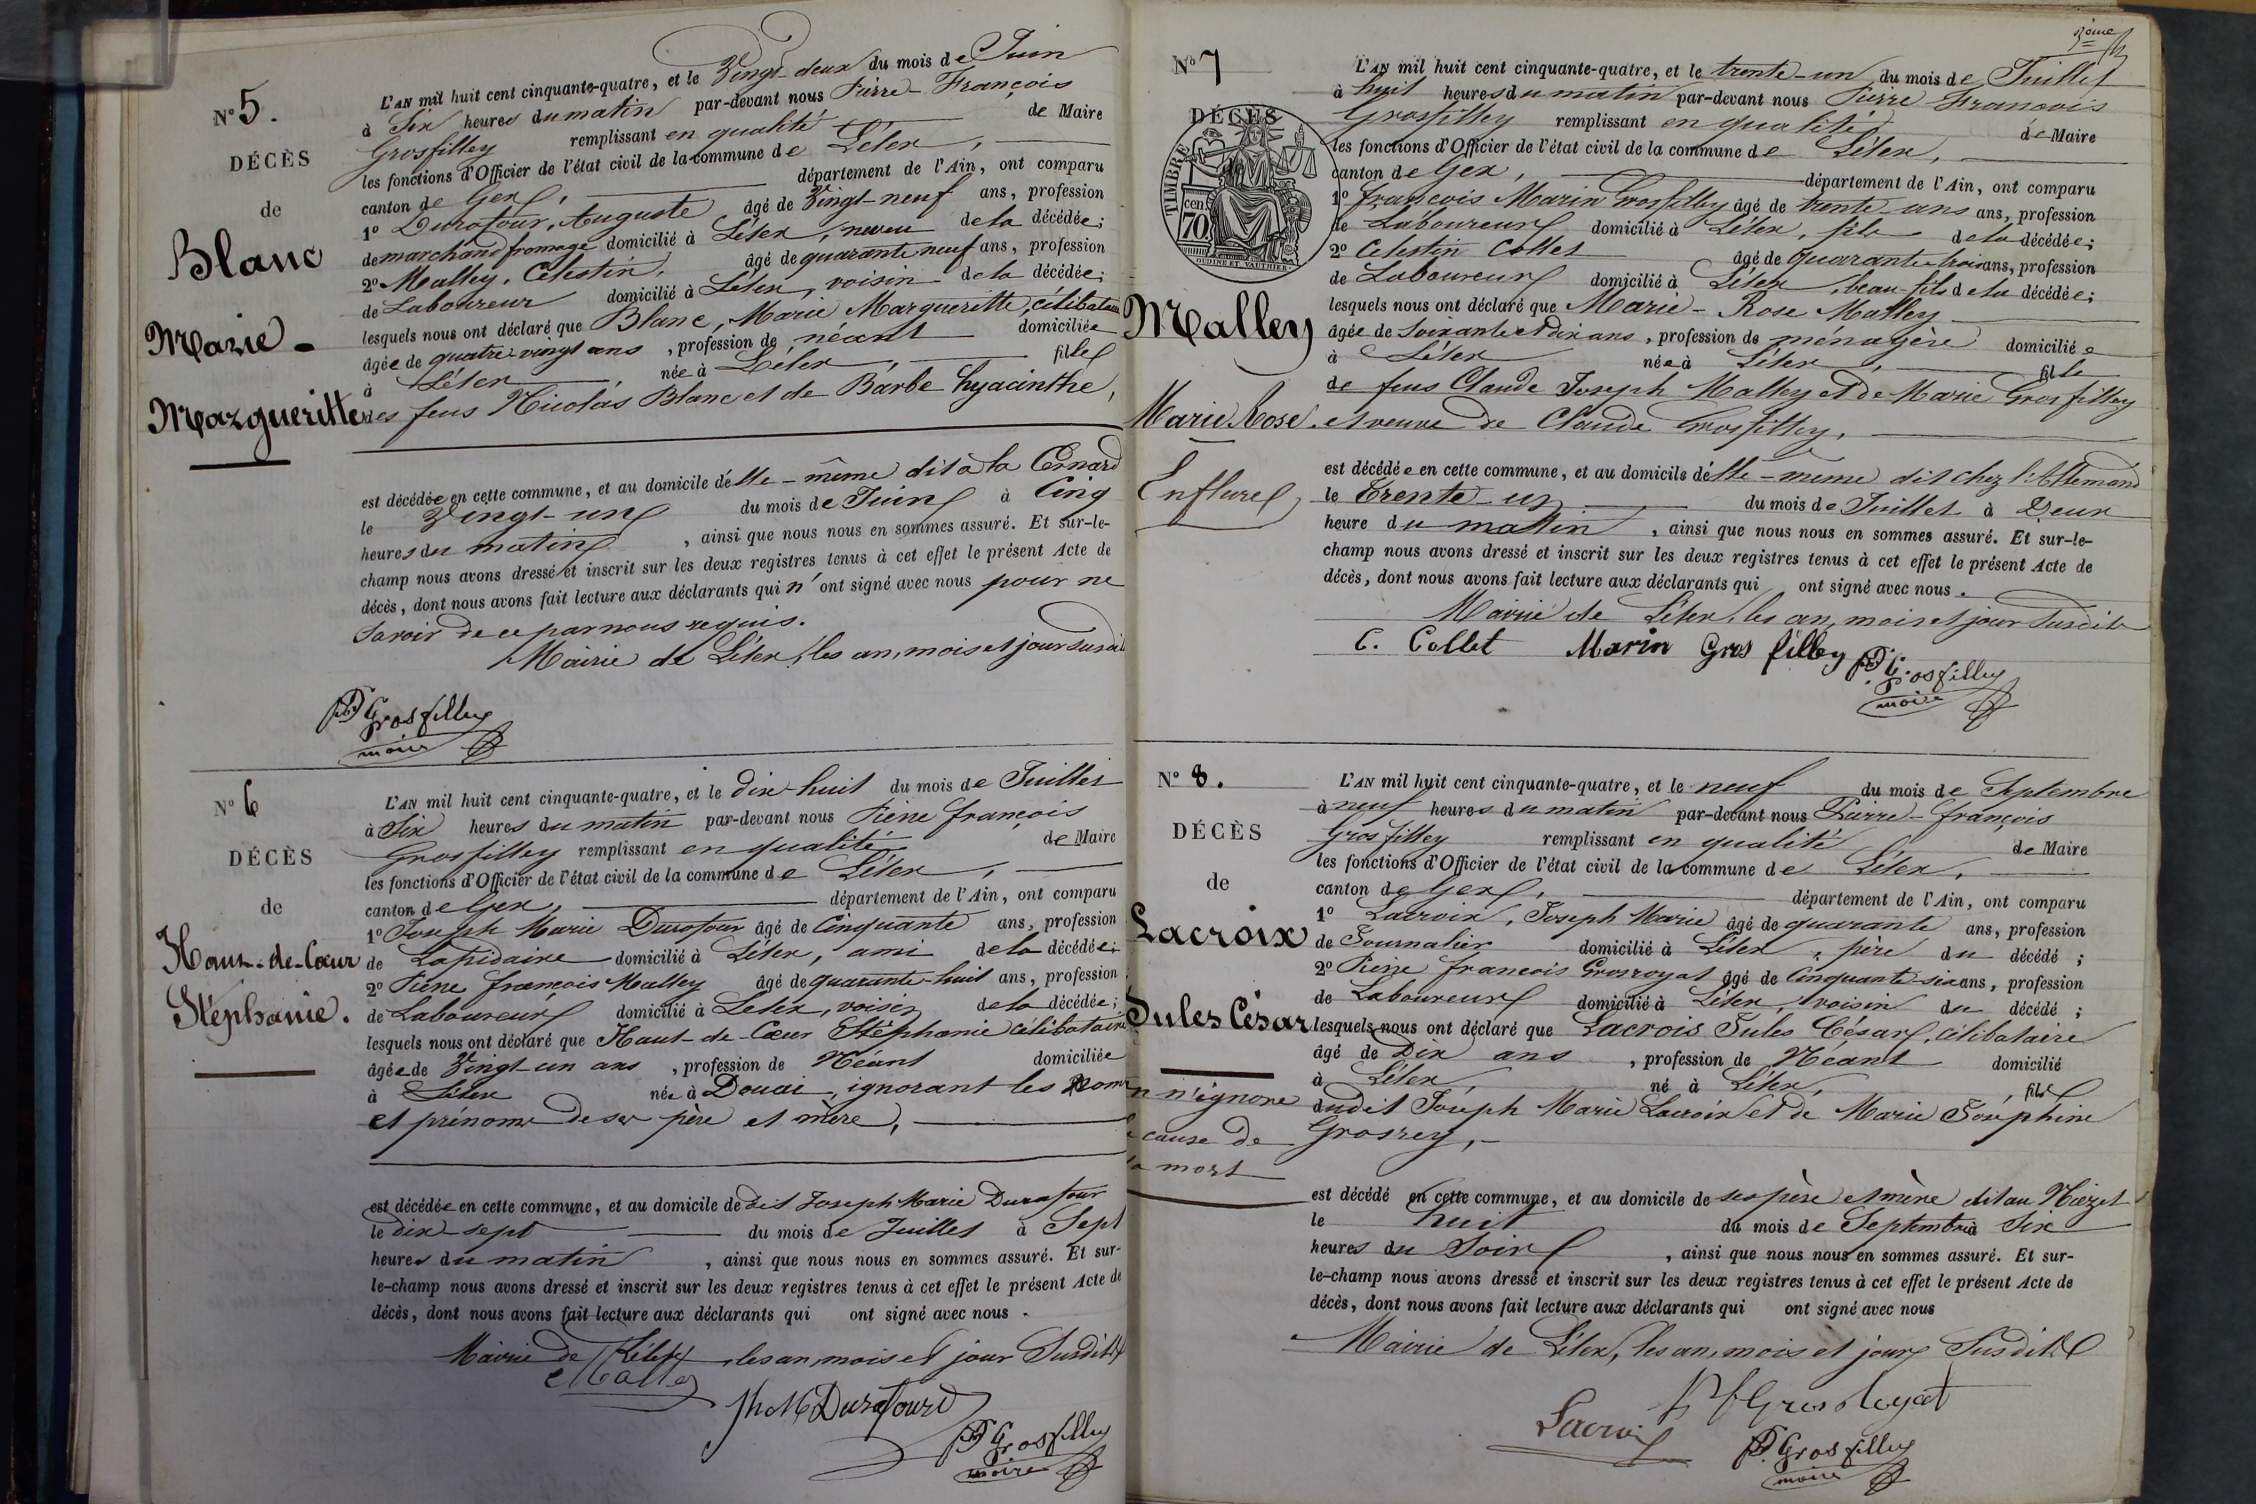 N° 5.
DÉCÈS
de
Blanc
Marie-
Margueritte
L'AN mil huit cent cinquante-quatre, et le Vingt-deux du mois de Juin
à Six heures du matin par-devant nous Pierre-François
Grosfilley remplissant en qualité de Maire
les fonctions d'Officier de l'état civil de la commune de Lélex,
canton de Gex, département de l'Ain, ont comparu
1° Durafour, Auguste âgé de Vingt-neuf ans, profession
de marchand fromage domicilié à Lélex, neveu de la décédée;
2° Malley, Célestin, âgé de quarante neuf ans, profession
de Laboureur domicilié à Lélex, voisin de la décédée;
lesquels nous ont déclaré que Blanc, Marie Margueritte, célibataire
âgée de quatre-vingt ans, profession de néant domiciliée
à Lélex née à Lélex, fille
des feus Nicolas Blanc et de Barbe hyacinthe,
est décédée en cette commune, et au domicile d'elle-même dit à la
le Vingt-un du mois de Juin à Cinq
heures du matin, ainsi que nous nous en sommes assuré. Et sur-le-
champ nous avons dressé et inscrit sur les deux registres tenus à cet effet le présent Acte de
décès, dont nous avons fait lecture aux déclarants qui n'ont signé avec nous pour ne
Savoir de ce par nous requis.
Mairie de Lélex, les an, mois et jour susdit
Grosfilley
maire
N° 6
DÉCÈS
de
Haut-de-Cœur
Stéphanie.
L'AN mil huit cent cinquante-quatre, et le dix-huit du mois de Juillet
à Six heures du matin par-devant nous Pierre françois
Grosfilley remplissant en qualité de Maire
les fonctions d'Officier de l'état civil de la commune de Lélex,
canton de Gex, département de l'Ain, ont comparu
1° Joseph Marie Durafour âgé de Cinquante ans, profession
de Lapidaire domicilié à Lélex, ami de la décédée;
2° Pierre françois Malley âgé de quarante-huit ans, profession
de Laboureur domicilié à Lélex, voisin de la décédée;
lesquels nous ont déclaré que Haut-de-Cœur Stéphanie célibataire
âgée de Vingt-un ans, profession de Néant domiciliée
à Lélex née à Douai, ignorant les nom
et prénoms de ses père et mère,
est décédée en cette commune, et au domicile de dit Joseph Marie Durafour
le dix sept du mois de Juillet à Sept
heures du matin, ainsi que nous nous en sommes assuré. Et sur-
le-champ nous avons dressé et inscrit sur les deux registres tenus à cet effet le présent Acte de
décès, dont nous avons fait lecture aux déclarants qui ont signé avec nous.
Mairie de Lélex, les an, mois et jour Susdit
Malley
Jh M Durafourd
Grosfilley
maire
5ème
N° 7
DÉCÈS
TIMBRE
70 cen
OUDINE ET VAUTHIER
Malley
Marie Rose.
Enflure
L'AN mil huit cent cinquante-quatre, et le trente-un du mois de Juillet
à huit heures du matin par-devant nous Pierre François
Grosfilley remplissant en qualité de Maire
les fonctions d'Officier de l'état civil de la commune de Lélex,
canton de Gex, département de l'Ain, ont comparu
1° françois Marin Grosfilley âgé de trente-ans ans, profession
de Laboureur domicilié à Lélex, fils de la décédée;
2° Celestin Collet âgé de quarante-trois ans, profession
de Laboureur domicilié à Lélex, beau-fils de la décédée;
lesquels nous ont déclaré que Marie-Rose Malley
âgée de Soixante et dix ans, profession de ménagère domiciliée
à Lélex née à Lélex, fille
de feus Claude Joseph Malley et de Marie Grosfilley
et veuve de Claude Grosfilley.
est décédée en cette commune, et au domicile d'elle-même dit chez l'Allemand
le trente-un du mois de Juillet à Deux
heure du matin, ainsi que nous nous en sommes assuré. Et sur-le-
champ nous avons dressé et inscrit sur les deux registres tenus à cet effet le présent Acte de
décès, dont nous avons fait lecture aux déclarants qui ont signé avec nous.
Mairie de Lélex, les an, mois et jour Susdits
C. Collet Marin Gros filley Grosfilley
maire
N° 8.
DÉCÈS
de
Lacroix
Jules César
n n'ignore
cause de
la mort
L'AN mil huit cent cinquante-quatre, et le neuf du mois de Septembre
à neuf heures du matin par-devant nous Pierre-françois
Grosfilley remplissant en qualité de Maire
les fonctions d'Officier de l'état civil de la commune de Lélex,
canton de Gex, département de l'Ain, ont comparu
1° Lacroix, Joseph Marie âgé de quarante ans, profession
de Journalier domicilié à Lélex, père du décédé;
2° Pierre francois Grosroyat âgé de Cinquante-six ans, profession
de Laboureur domicilié à Lélex, voisin du décédé;
lesquels nous ont déclaré que Lacrois Jules César, célibataire
âgé de Dix ans, profession de Néant domicilié
à Lélex, né à Lélex, fils
dudit Joseph Marie Lacroix et de Marie Joséphine
Grosrey,
est décédé en cette commune, et au domicile de ses père et mère dit au Niézet
le huit du mois de Septembre à Six
heures du Soir, ainsi que nous nous en sommes assuré. Et sur-
le-champ nous avons dressé et inscrit sur les deux registres tenus à cet effet le présent Acte de
décès, dont nous avons fait lecture aux déclarants qui ont signé avec nous
Mairie de Lélex, les an, mois et jour Susdits
Gros Royat
Lacroix
Grosfilley
maire